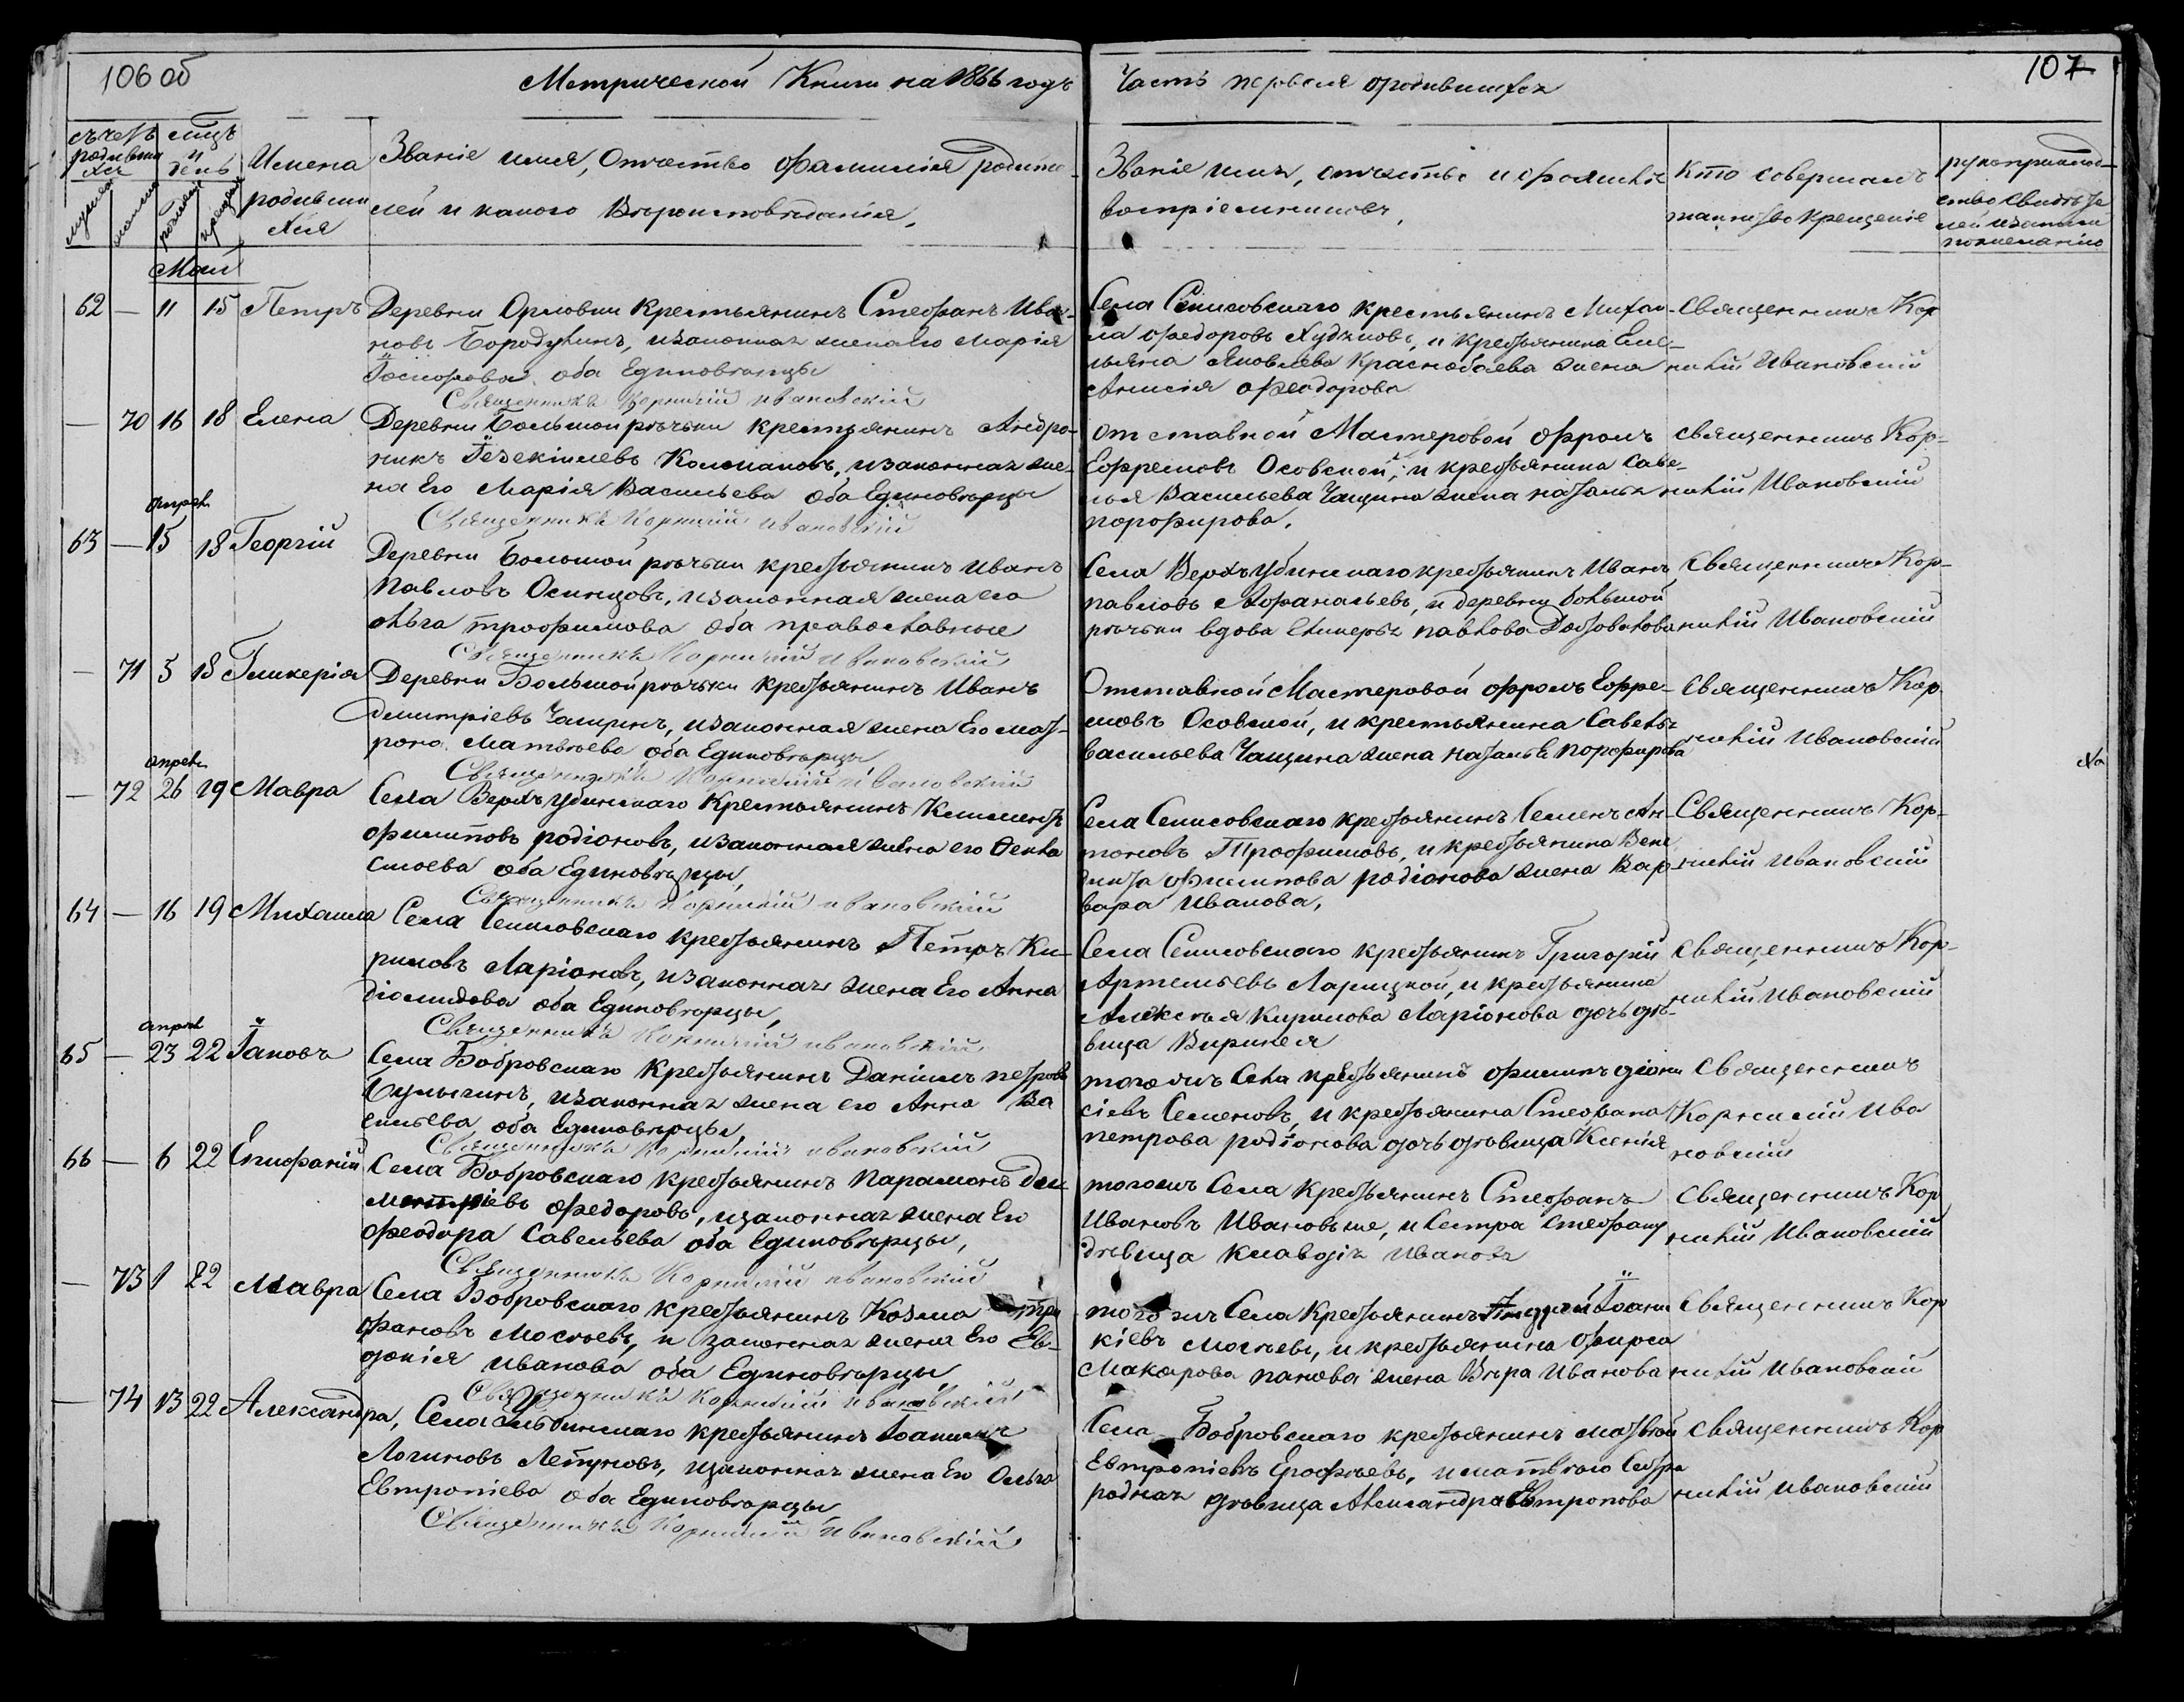 106 об
Метрической Книги на 1866 годъ
Часть первая о родившихся
107
счетъ родившихся
мѣцъ и день
Имена родившихся
Званіе имя, Отчество фамилія родите-
лей и какого Вѣроисповѣданія,
Званіе имя, отчество и фамилія
воспріемниковъ,
Кто совершалъ
таинство крещеніе
рукоприклад-
ство свидѣте
лей и записи
по желанію
мужска
женска
рожден
крещен
Май
62 — 11 15 Петръ
Деревни Орловки Крестьянинъ Стефанъ Ива-
новъ Бородухинъ, изаконная жена Его Марія
оба Единовѣрцы
Священникъ Корнилій Ивановскій
Села Секисовскаго крестьянинъ Михаи-
ла Федоровъ Худяковъ, и Крестьянина Еме-
льяна Яковлева Краснобаева жена
Анисія Феодорова
Священникъ Кор
нилій Ивановскій
— 70 16 18 Елена
Деревни Большой рѣчьки крестьянинъ Андро-
никъ Іезекіилевъ Колмаковъ, изаконная же-
на Его Марія Васильева оба Единовѣрцы
Священникъ Корнилій Ивановскій
отставной Мастеровой Фролъ
Ефремовъ Осовской, и крестьянина Саве-
лья Васильева Чащина жена Наталья
порфирова.
священникъ Кор-
нилій Ивановскій
апрель
63 — 15 18 Георгій
Деревни Большой рѣчьки крестьянинъ Иванъ
Павловъ Осинцовъ, изаконная жена его
ольга трофимова оба православные
Священникъ Корнилій Ивановскій
Села Верхъубинскаго крестьянинъ Иванъ
павловъ Афанасьевъ, и деревни большой
рѣчьки вдова павлова
Священникъ Кор-
нилій Ивановскій
— 71 5 18 Гликерія
Деревни Большой рѣчьки крестьянинъ Иванъ
Дмитріевъ Чащинъ, изаконная жена Его мат-
рона Матвѣева оба Единовѣрцы
Священникъ Корнилій Ивановскій
Отставной Мастеровой фролъ Ефре-
мовъ Осовской, и крестьянина Савелья
васильева Чащина жена Наталья порфирова
Священникъ Кор
нилій Ивановскій
апрель
— 72 26 19 Мавра
Села Верхъубинскаго Крестьянинъ Климентъ
филиповъ родіоновъ, изаконная жена его Фекла
оба Единовѣрцы,
Священникъ Корнилій Ивановскій
Села Секисовскаго крестьянинъ Семенъ Ан-
тоновъ Трофимовъ, и крестьянина Вене
дикта филипова родіонова жена Вар-
вара Иванова,
Священникъ Кор-
нилій Ивановскій
64 — 16 19 Михаила
Села Секисовскаго крестьянинъ Петръ Ки-
риловъ Ларіоновъ, изаконная жена Его Анна
діомидова оба Единовѣрцы,
Священникъ Корнилій Ивановскій
Села Секисовскаго крестьянинъ Григорій
Артемьевъ Ларицкой, и крестьянина
Алексѣя Кирилова Ларіонова дочь дѣ-
вица Виринея
священникъ Кор-
нилій Ивановскій
апрел
65 — 23 22 Іаковъ
Села Бобровскаго крестьянинъ Даніилъ петровъ
Булыгинъ, изаконная жена его Анна Ва
сильева, оба Единовѣрцы,
Священникъ Корнилій Ивановскій
тогожъ Села крестьянинъ филипъ діони
сіевъ Семеновъ, и крестьянина Стефана
петрова родіонова дочь дѣвица Ксенія
Священникъ
Корнилій Ива
новскій
66 — 6 22 Епифаній
Села Бобровскаго крестьянинъ Парамонъ
Федоровъ, изаконная жена Его
Феодора Савельева оба Единовѣрцы,
Священникъ Корнилій Ивановскій
тогожъ Села крестьянинъ Стефанъ
Ивановъ Ивановыхъ, и Сестра Стефану
дѣвица Клавдія Иванова
Священникъ Кор
нилій Ивановскій
— 73 1 22 Мавра
Села Бобровскаго крестьянинъ Козма три
фановъ Мосѣевъ, и законная жена Его Ев-
докія Иванова оба Единовѣрцы
Священникъ Корнилій Ивановскій
тогожъ Села Крестьянинъ Андрей Іоани
кіевъ Мосѣевъ, и крестьянина Фирса
Макарова панова жена Вѣра Иванова
Священникъ Кор
нилій Ивановскій
— 74 13 22 Александра,
Села Ульбинскаго крестьянинъ Іоаникій
Логиновъ Летуновъ, изаконная жена Его Ольга
Евтропіева оба Единовѣрцы
Священникъ Корнилій Ивановскій
Села Бобровскаго крестьянинъ матвѣй
Евтропіевъ Ерофѣевъ, и матвѣю Сестра
родная дѣвица Александра Евтропова
священникъ Кор
нилій Ивановскій